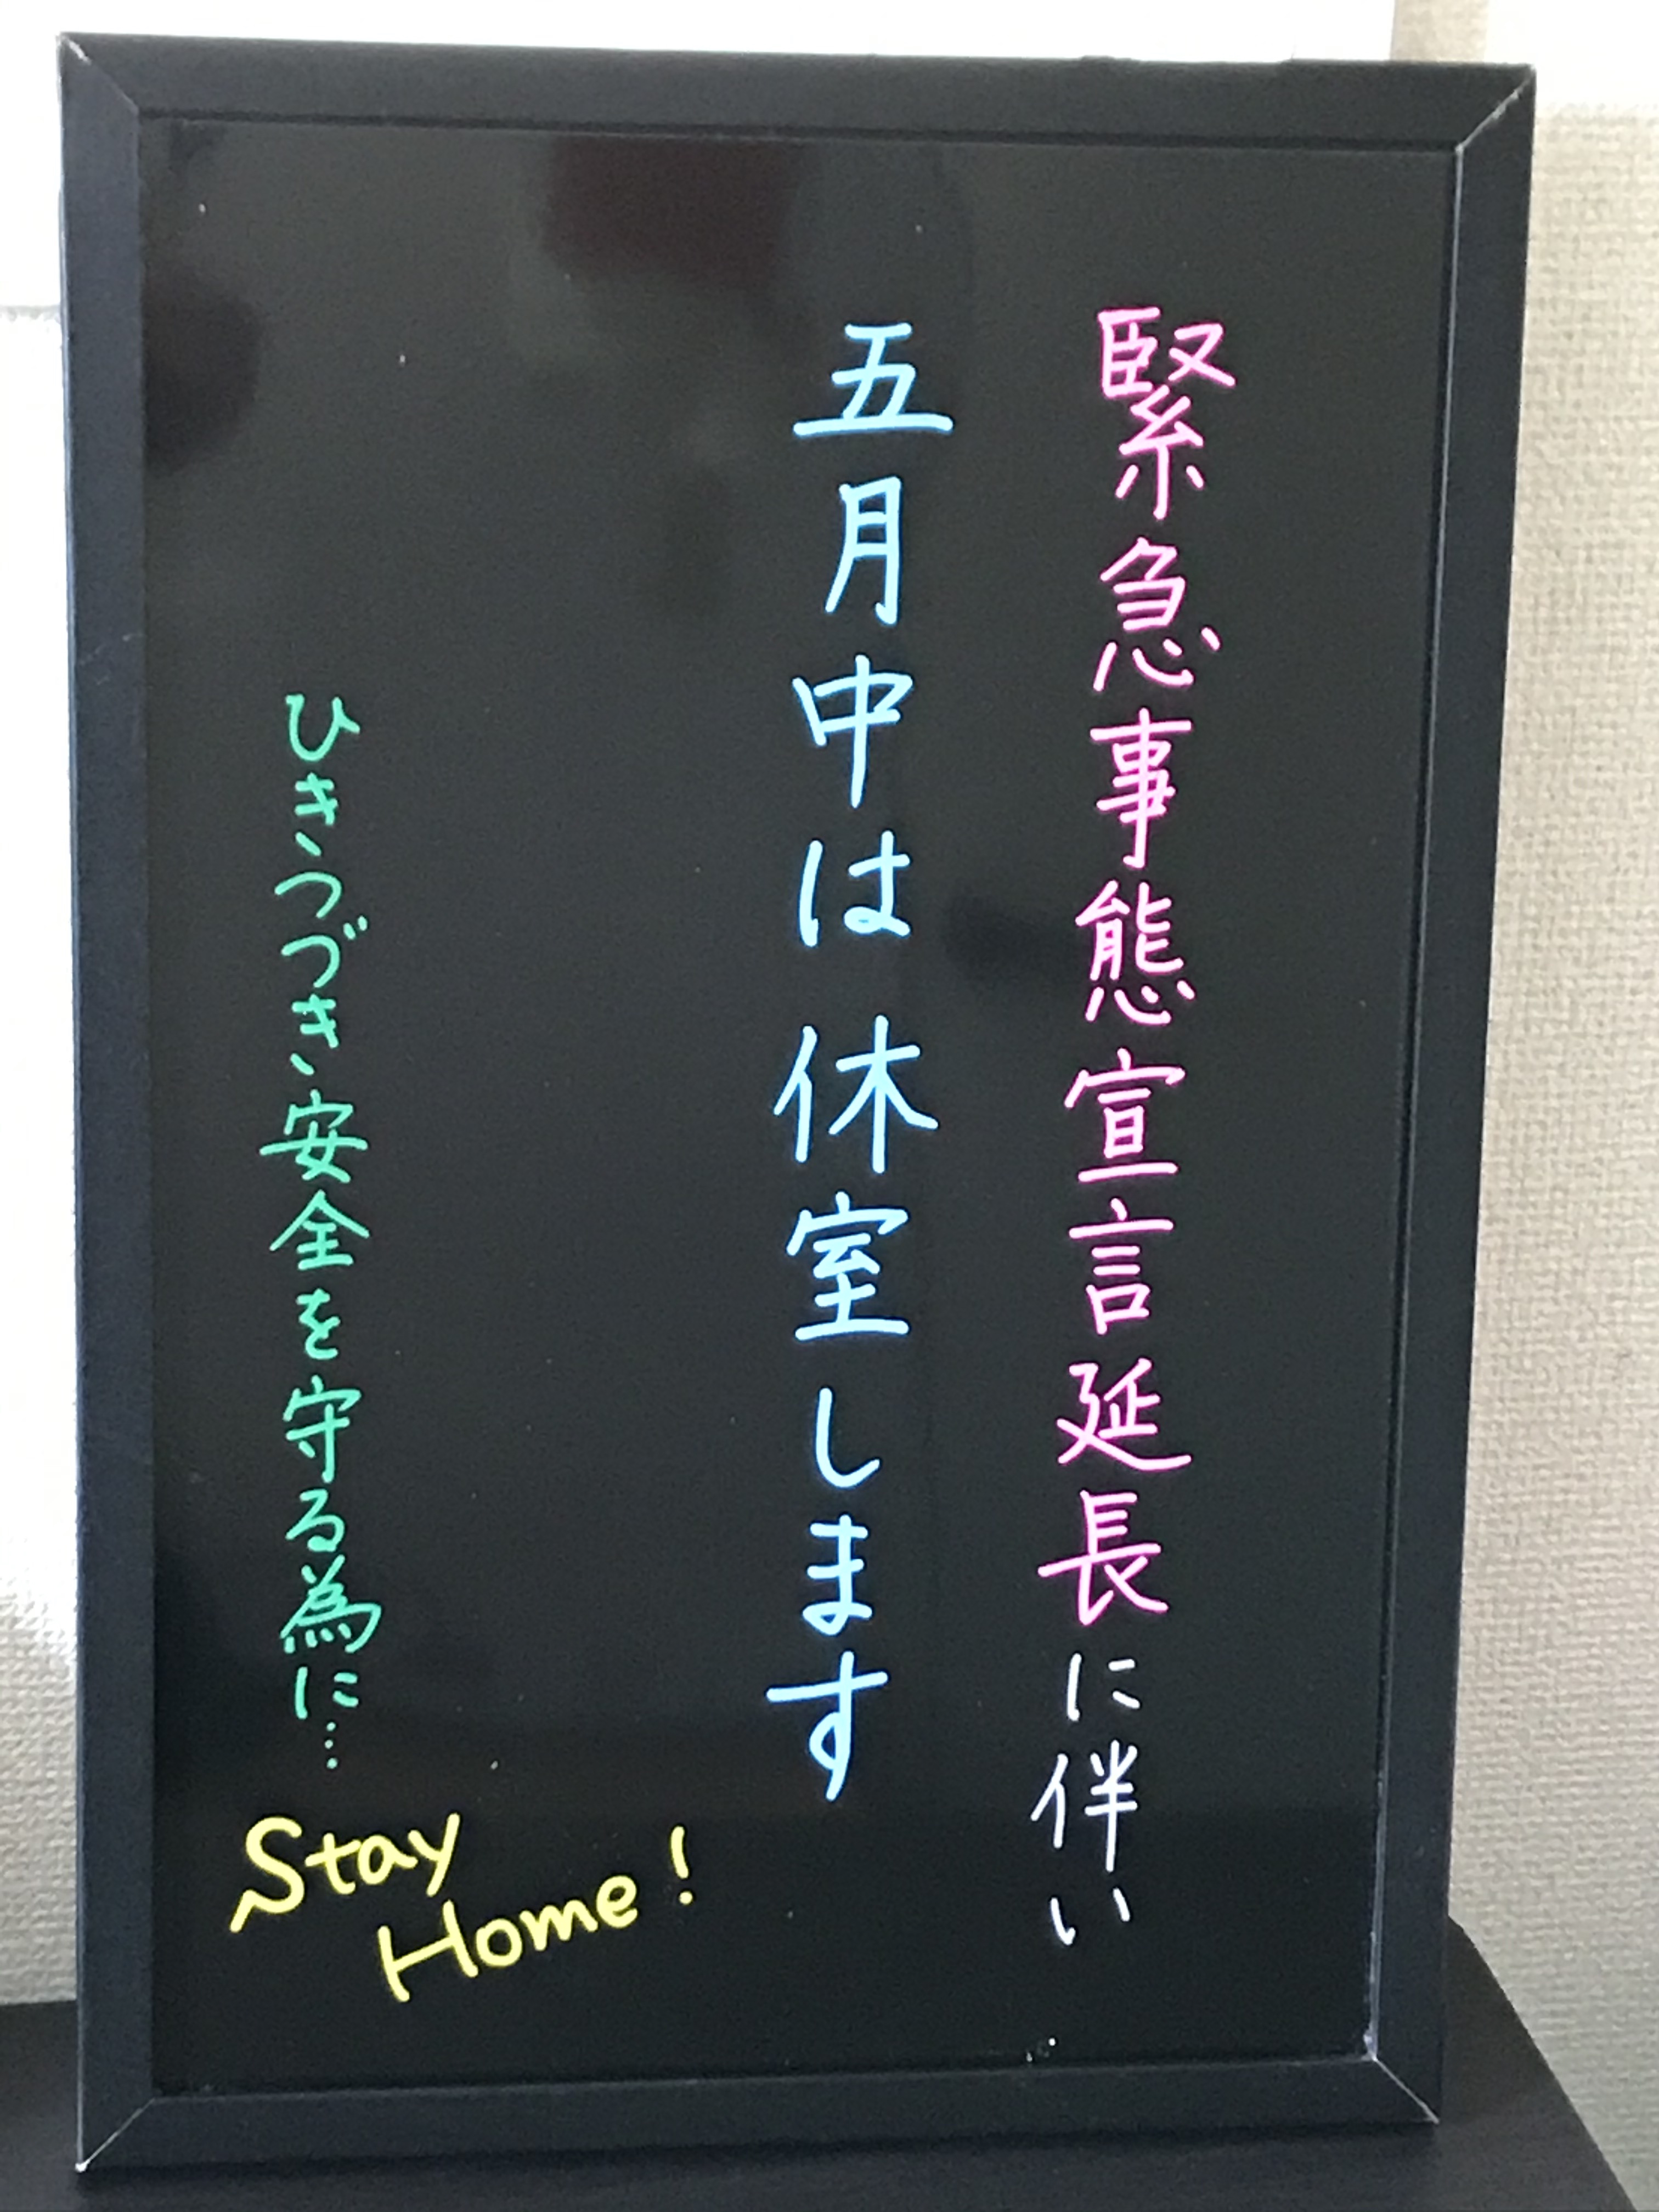 緊急事態宣言延長に伴い
五月中は休室します
ひきつづき安全を守る為に…
Stay
Home!